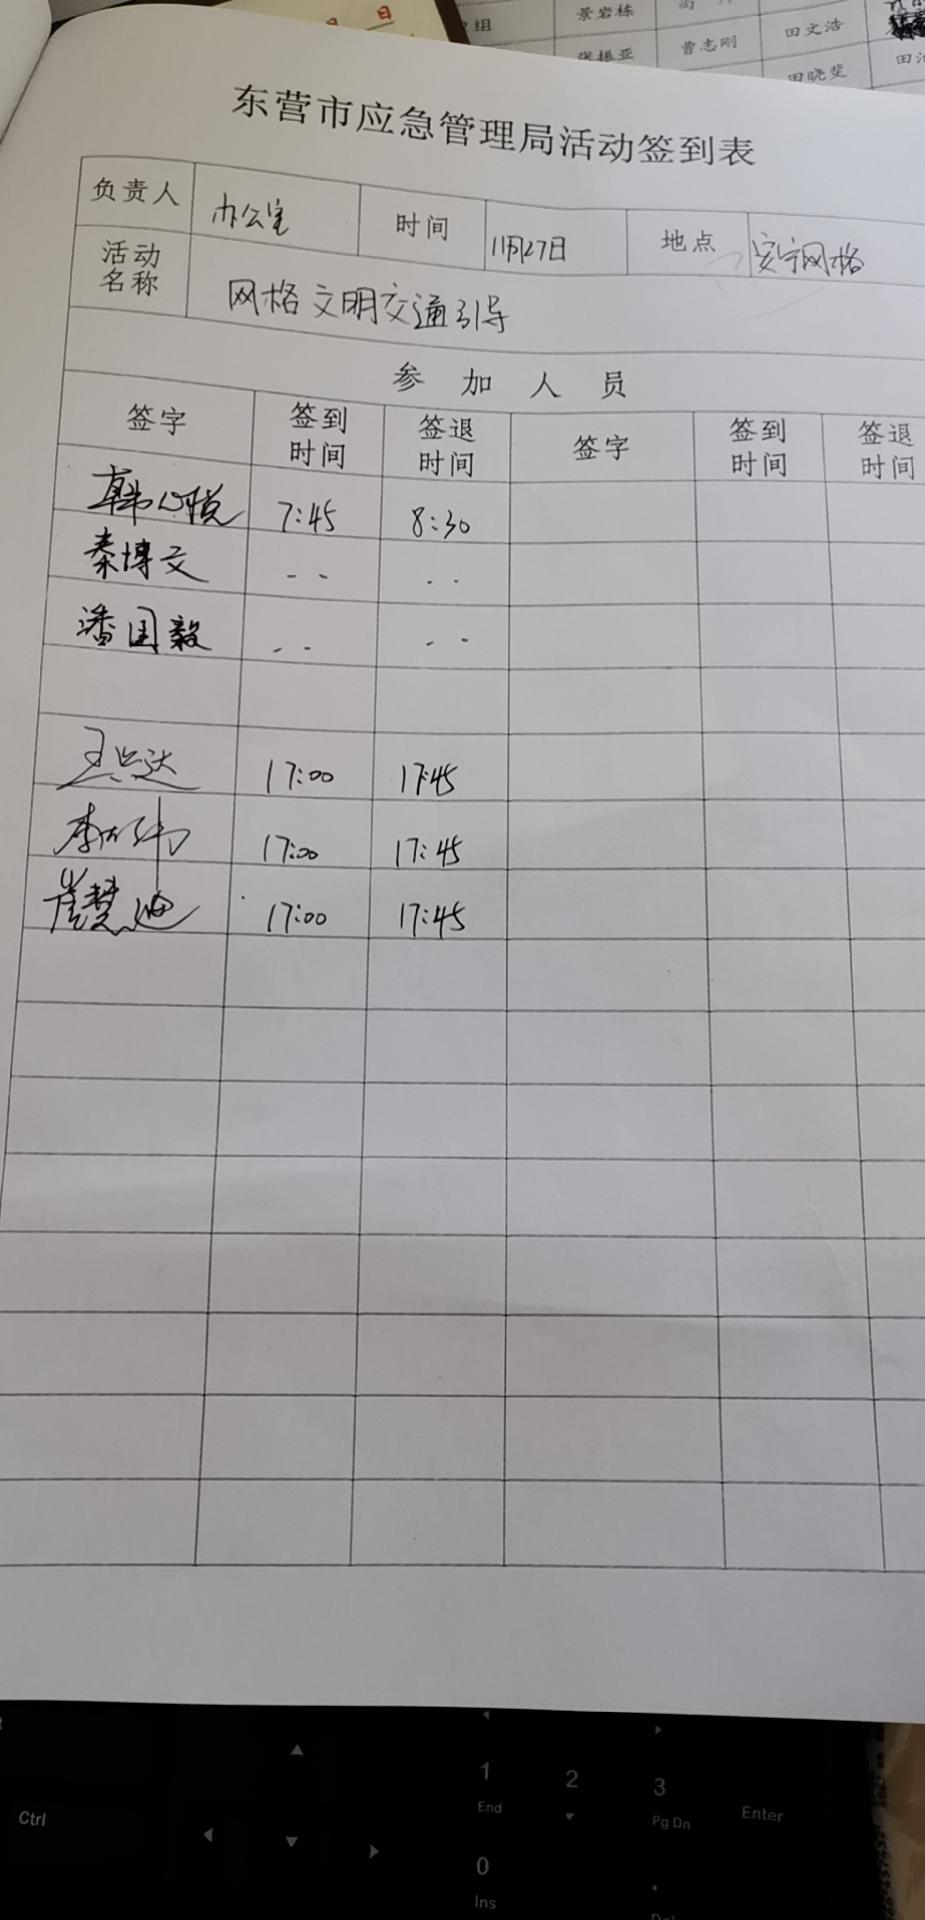 日 日
组 景岩栋
张振亚 曹志刚 田文浩
田晓斐
东营市应急管理局活动签到表
负责人 办公室 时间 11月27日 地点 安宁网格
活动名称 网格文明交通引导
参加人员
签字 签到时间 签退时间 签字 签到时间 签退时间
韩心悦 7:45 8:30
秦博文 - - - -
潘国毅 - - - -
王兴达 17:00 17:45
17:00 17:45
崔慧迪 17:00 17:45
Ctrl
1 2 3
End Pg Dn Enter
0
Ins